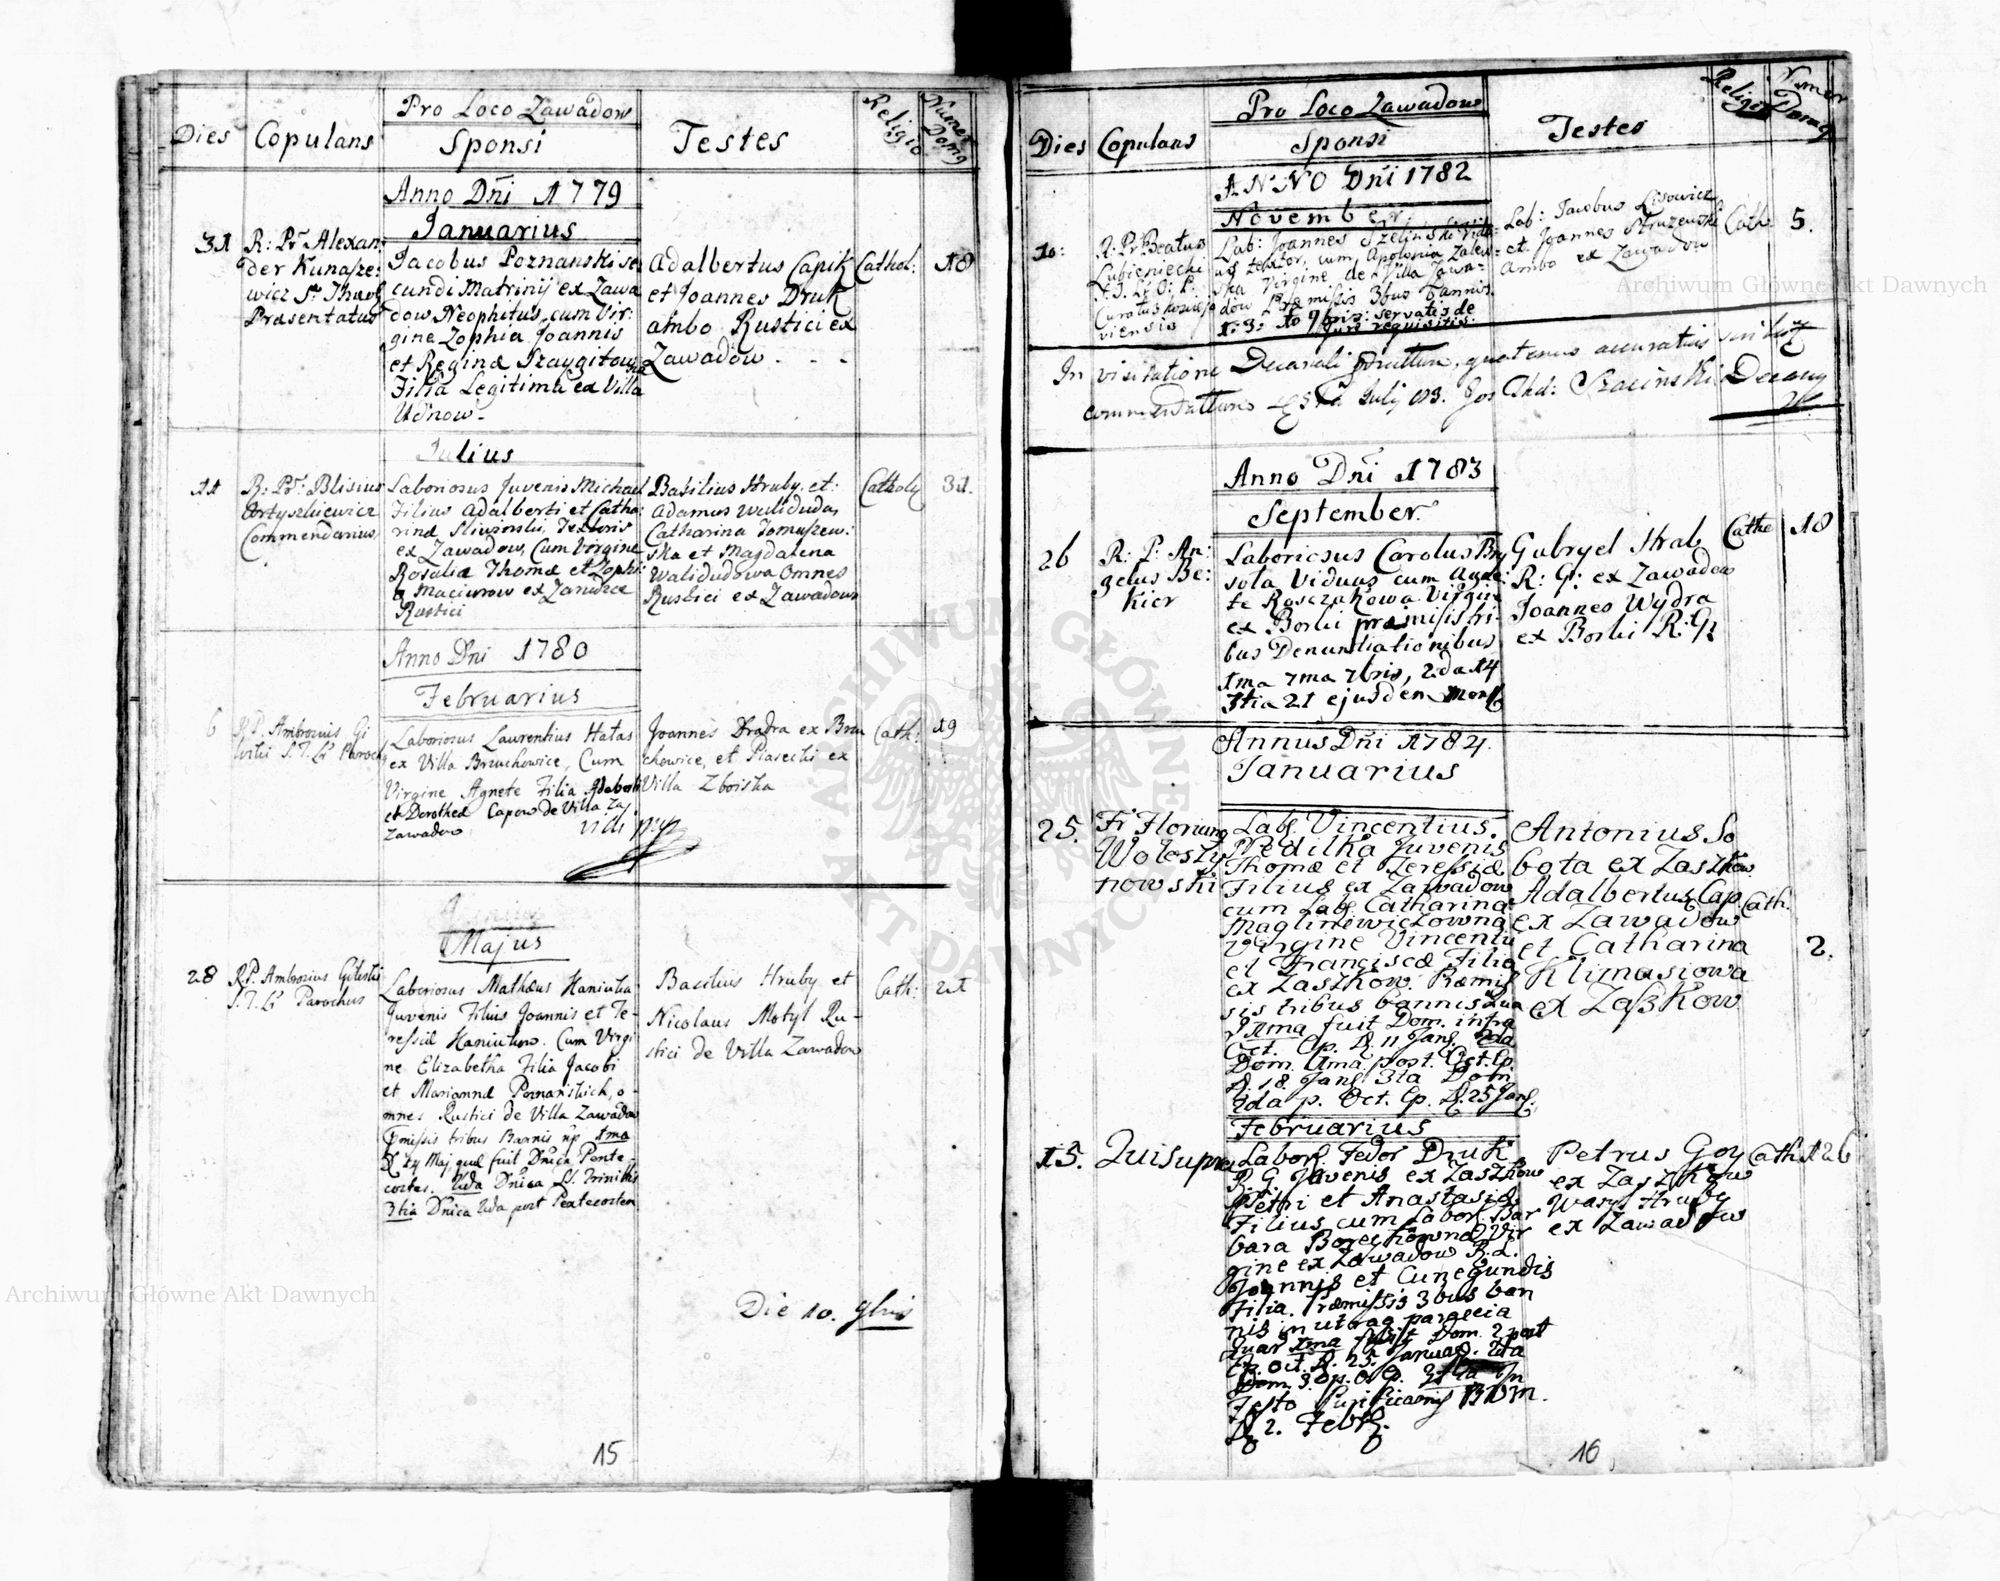 Pro Loco Zawadow
Dies Copulans Sponsi Testes Religio Numer Domq
Anno Dñi 1779
Januarius
31 R: Pr Alexan
der Kunasze:
wicz Sr Thaol
Præsentatus
Jacobus Poznanski se
cundi Matrinij ex Zawa
dow Neophitus, cum Vir:
gine Zophia Joannis
et Reginæ
Filia Legitima ex Villa
Udnow-
Adalbertus Capik
et Joannes Druk
ambo Rustici ex
Zawadow - - -
Cathol: 18
Julius
11 R: Pr: Blisius
Artyszkiewicz
Commendarius
Laboriosus Juvenis Michael
Filius Adalberti et Catha:
rinæ Sliwinski, Textoris
ex Zawadow, Cum Virgine
Rosalia Thomæ et Zophi:
a Maciurow ex Zarudce
Rustici
Basilius Hruby et:
Adamus Walidudas
Catharina Tomuszew:
ska et Magdalena
Walidudowa Omnes
Rustici ex Zawadow
Catholy 31.
Anno Dñi 1780
Februarius
6 R.P. Ambrosius Gi
S.T.Lr Paroch
Laboriosus Laurentius Hatas
ex Villa Brzuchowice, Cum
Virgine Agnete Filia Adalberti
et Dorotheæ Capow de Villa Za
Zawadow
vidi mpp
Joannes Dradra ex Brzu
chowice, et Piasecki ex
Villa Zboiska
Cath: 19
Majus
28 R.P. Ambrosius
S.T.Lr Parochus
Laboriosus Mathæus Haniutka
Juvenis Filius Joannis et Te-
ressiæ Haniutkow. Cum Virgi
ne Elizabetha Filia Jacobi
et Mariannæ Poznanskich, o-
mnes Rustici de Villa Zawadow
Præmissis tribus Bannis np 1ma
D. 14 Maj, quæ fuit Dnica Pente-
costes. 2da Dnica SS. Trinitatis
3tia Dnica 2da post Pentecosten
Bacilius Hruby et
Nicolaus Motyl Ru-
stici de Villa Zawadow
Cath: 21
Die 10. 9bris
15
Pro Loco Zawadow
Dies Copulans Sponsi Testes Religio Numer Domq
ANNO Dñi 1782
November
10: R: Pr: Beatus
Lubieniecki
S.T.L: O: P.
Curatus
viensis
Lab: Joannes Szeliński Vidu-
us textor, cum Apolonia Zalew-
ska Virgine de Villa Zawa-
dow Præmissis 3bus Bannis
1. 3. 10 9bris: servatis de
Jure requisitis.
Lab: Jacobus Lisowicz
et Joannes Struzewski
Ambo ex Zawadow
Cath 5.
In visitatione Decanali quatenus accuratius scribat
July 83. Jos Thad: Szacinski Decany
Anno Dñi 1783
September.
26 R: P: An:
gelus Be:
kier
Laboriosus Carolus Bry
sola Viduus cum Agne:
te Roszczakowa Virgine
ex Borki præmissis tri-
bus Denuntiationibus
1ma 7ma 7bris, 2da 14
3tia 21 ejusdem Mens
Gabryel Hrab
R: G: ex Zawadow
Joannes Wydra
ex Borki R: G:
Cathe 18
Annus Dñi 1784.
Januarius
25. Fr Florianq
Wolesty
nowski
Lab Vincentius
Nedilka Juvenis
Thomæ et Teressiæ
Filius ex Zawadow
cum Lab Catharina
Maglinewiczowna
Virgine Vincentii
et Franciscæ Filia
ex Zaszkow. Præmis
sis tribus bannis
1ma fuit Dom. infra
Oct. Ep. D. 11 Jan. 2da
Dom. 1ma post. Oct. Ep.
D. 18. Jan. 3ta Dom
2da p. Oct. Ep. D. 25 Jan.
Antonius So
bota ex Zaszkow
Adalbertus Cap.
ex Zawadow
et Catharina
Klimasiowa
ex Zaszkow
Cath.
2.
Februarius
15. Qui supra
Labor Fedor Druk
R. G. Juvenis ex Zaszkow
Petri et Anastasiæ
Filius cum Labor. Bar
bara Boreckowna Vir
gine ex Zawadow R. L.
Joannis et Cunegundis
Filia. Præmissis 3bus ban
nis in utraq parœcia
quar 1ma fuit Dom. 2 post
Ep. oct. D. 25. Januar. 2da
Dom 3. p. O. Ep. 3tia In
Festo Purificaonis BVM.
D. 2. Febr.
Petrus Goy
ex Zaszkow
Wasyl Hruby
ex Zawadow
Cath 126
16
Archiwum Główne Akt Dawnych
Archiwum Główne Akt Dawnych
ARCHIWUM GŁÓWNE
AKT DAWNYCH